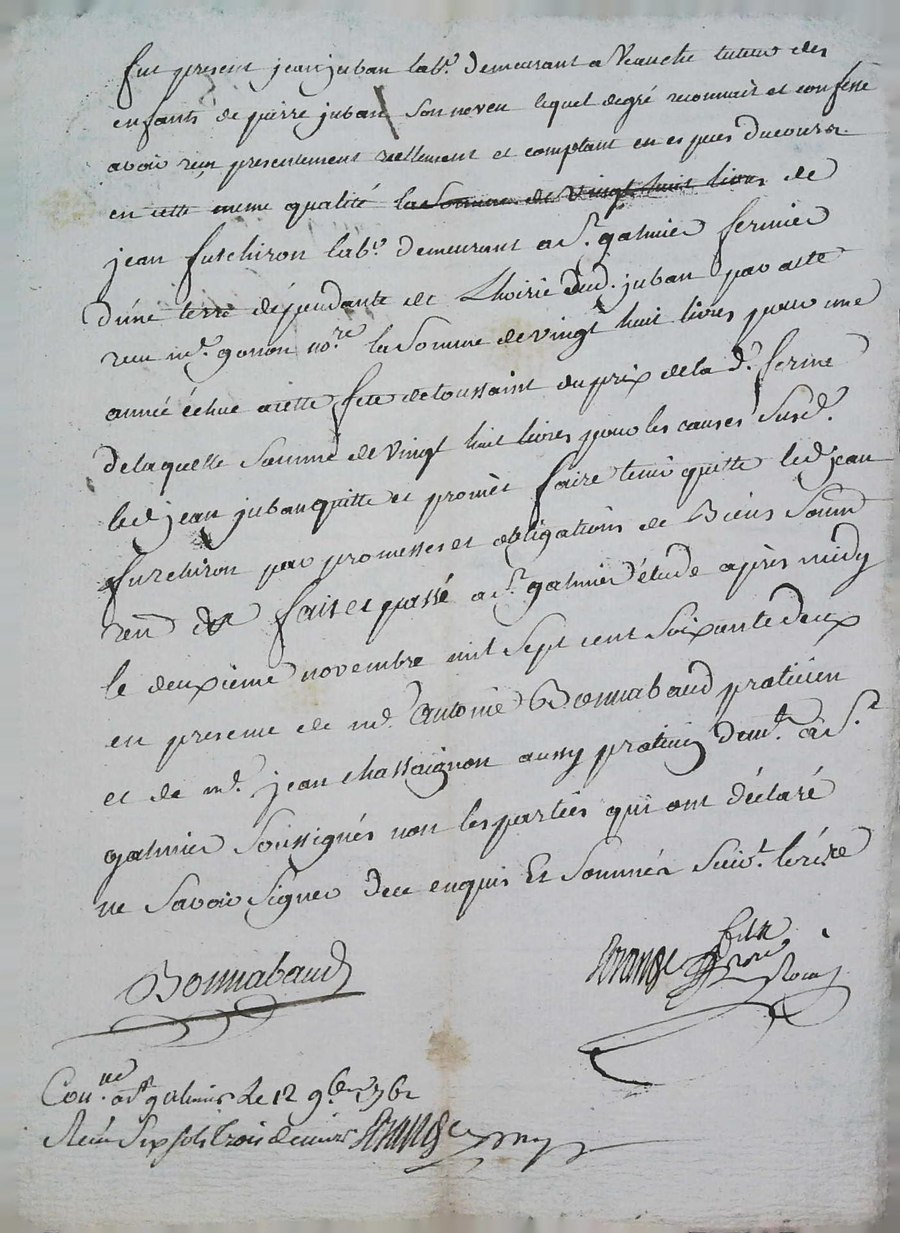 fut present jean juban lab.r demeurant a Veauche tuteur des
enfants de pierre juban son neveu lequel degré reconnait et confesse
avoir reçu presentement reellement et comptant en espèces du cours
en cette meme qualité la somme de vingt huit livres de
jean furchiron lab.r demeurant a S.t galmier fermier
d'une terre dépendante de Lhoirie dud. juban par acte
reçu m.e gonon no.re la somme de vingt huit livres pour une
année échue a cette fete de toussaint du prix de la d.e ferme
de laquelle somme de vingt huit livres pour les causes susd.
led jean juban quitte et promèt faire tenir quitte led jean
furchiron par promesses et obligations de Biens soum
ren fait et passé a S.t galmier étude après midy
le deuxieme novembre mil sept cent soixante deux
en presence de m.e antoine Bonnabaud praticien
et de m.e jean chassaignon aussy praticien dem.t à S.t
galmier soussignés non les parties qui ont déclaré
ne savoir signer dece enquis Et sommés suiv.t
Bonnabaud
fils
Con.né a S.t galmier Le 12 9bre 1762
Reçu six sols trois deniers